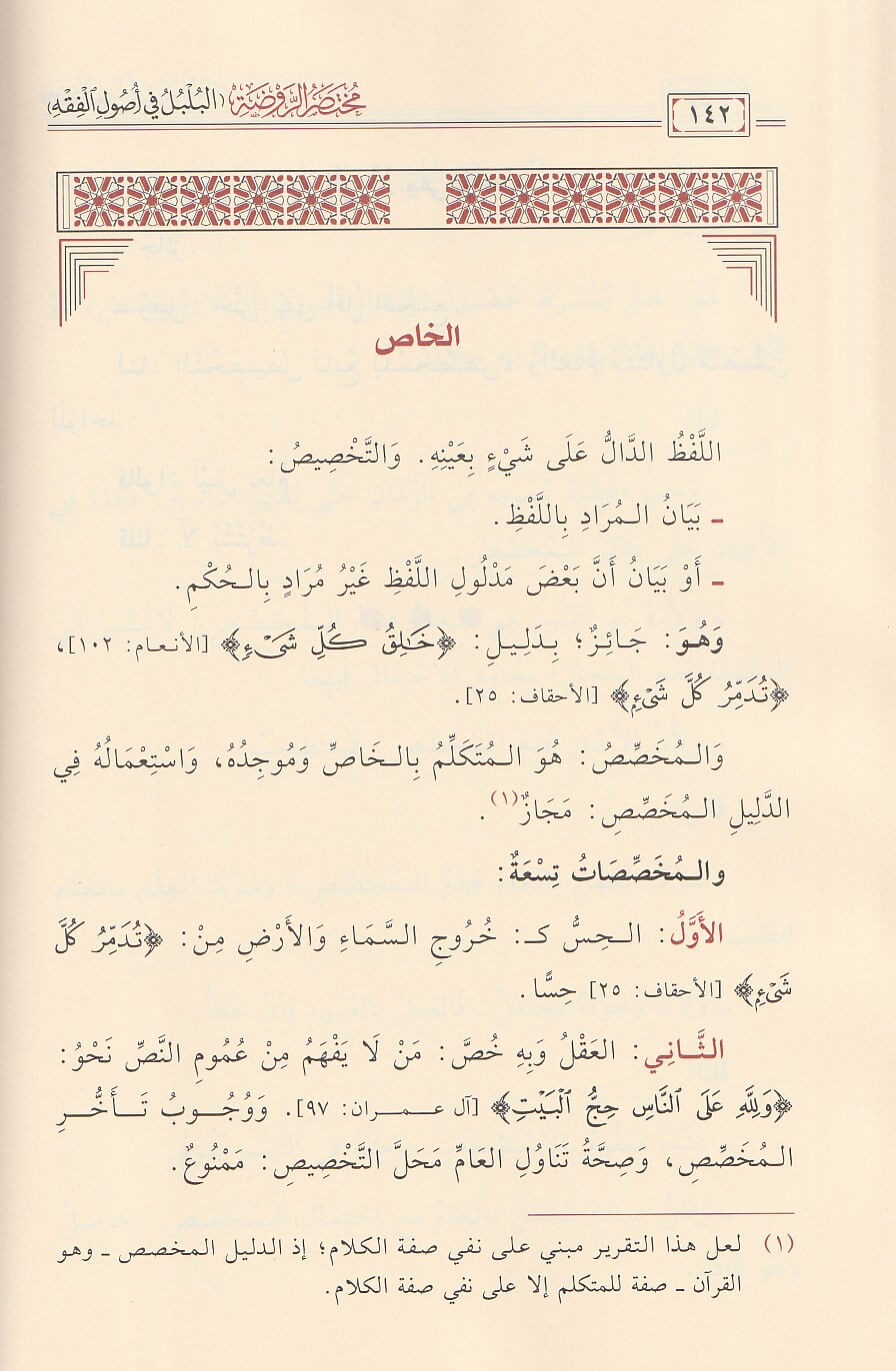 ١٤٢
مُخْتَصَرُ الرَّوْضَةِ (البُلْبُلُ فِي أُصُولِ الْفِقْهِ)
الخاص
اللَّفْظُ الدَّالُّ عَلَى شَيْءٍ بِعَيْنِهِ. وَالتَّخْصِيصُ:
ـ بَيَانُ المُرَادِ بِاللَّفْظِ.
ـ أَوْ بَيَانُ أَنَّ بَعْضَ مَدْلُولِ اللَّفْظِ غَيْرُ مُرَادٍ بِالحُكْمِ.
وَهُوَ: جَائِزٌ؛ بِدَلِيلِ: ﴿خَٰلِقُ كُلِّ شَىْءٍ﴾ [الأنعام: ١٠٢]،
﴿تُدَمِّرُ كُلَّ شَىْءٍ﴾ [الأحقاف: ٢٥].
وَالمُخَصِّصُ: هُوَ المُتَكَلِّمُ بِالخَاصِّ وَمُوجِدُهُ، وَاسْتِعْمَالُهُ فِي
الدَّلِيلِ المُخَصِّصِ: مَجَازٌ(١).
والمُخَصِّصَاتُ تِسْعَةٌ:
الأَوَّلُ: الحِسُّ كـ: خُرُوجِ السَّمَاءِ وَالأَرْضِ مِنْ: ﴿تُدَمِّرُ كُلَّ
شَىْءٍ﴾ [الأحقاف: ٢٥] حِسًّا.
الثَّانِي: العَقْلُ وَبِهِ خُصَّ: مَنْ لَا يَفْهَمُ مِنْ عُمُومِ النَّصِّ نَحْوُ:
﴿وَلِلَّهِ عَلَى ٱلنَّاسِ حِجُّ ٱلْبَيْتِ﴾ [آل عمران: ٩٧]. وَوُجُوبُ تَأَخُّرِ
المُخَصِّصِ، وَصِحَّةُ تَنَاوُلِ العَامِّ مَحَلَّ التَّخْصِيصِ: مَمْنُوعٌ.
(١) لعل هذا التقرير مبني على نفي صفة الكلام؛ إذ الدليل المخصص ـ وهو
القرآن ـ صفة للمتكلم إلا على نفي صفة الكلام.